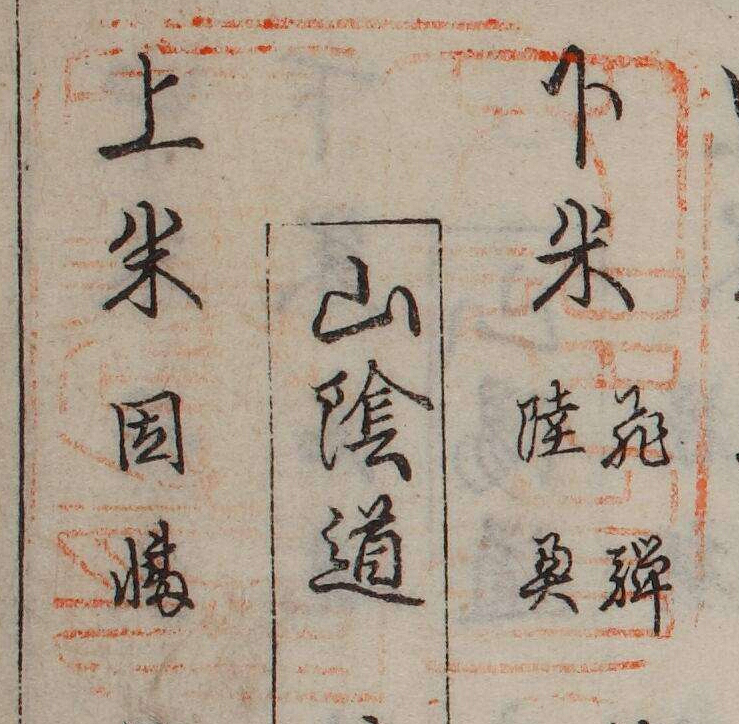 下米 飛騨
陸奥
山陰道
上米因幡